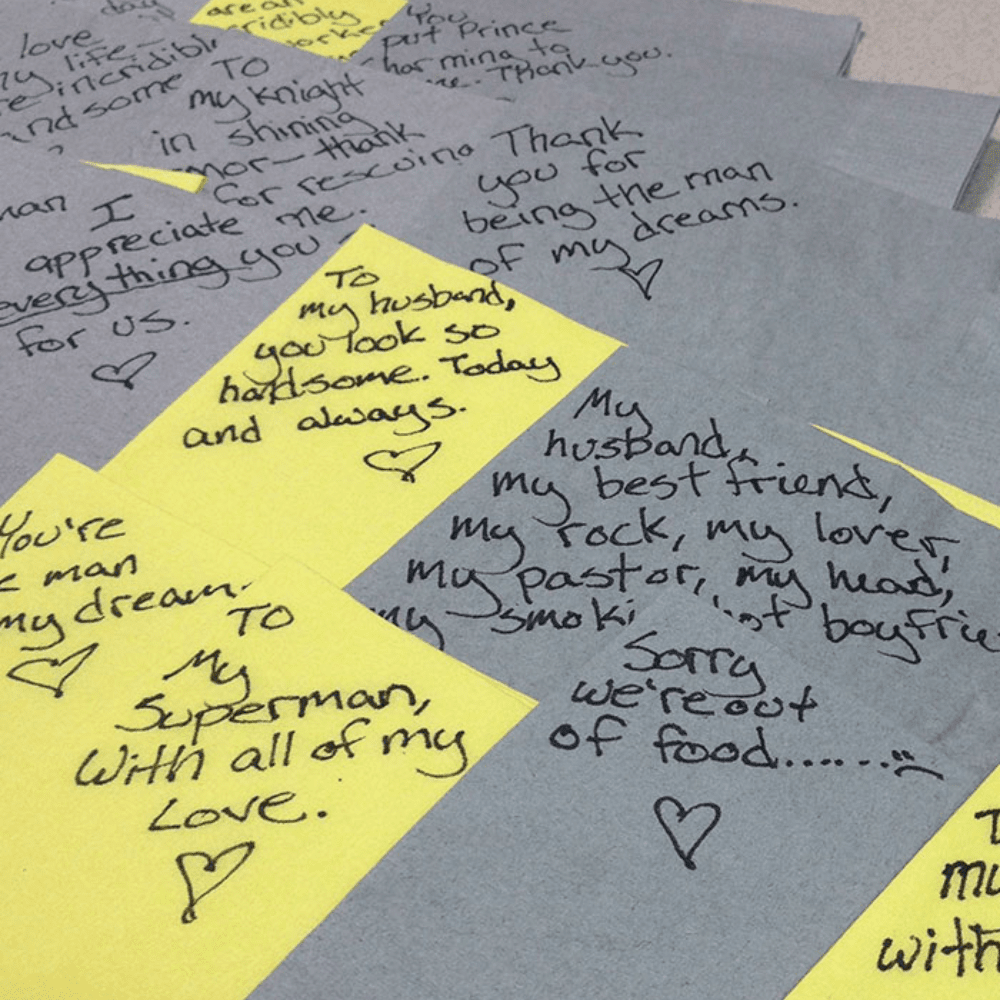 day
love
my life
incridibl
TO
my knight
in shining
mor- thank
for rescuing
me.
are an
ridibly
You
put Prince
charming to
Thank you.
Thank
you for
being the man
of my dreams.
man I
appreciate
everything you
for us.
To
my husband,
you look so
handsome. Today
and always.
My
husband,
my best friend,
my rock, my lover,
my pastor, my head,
my smoki
boyfrie
You're
e man
my dream.
TO
My
Superman,
With all of my
Love.
Sorry
we're out
of food.......
my
with